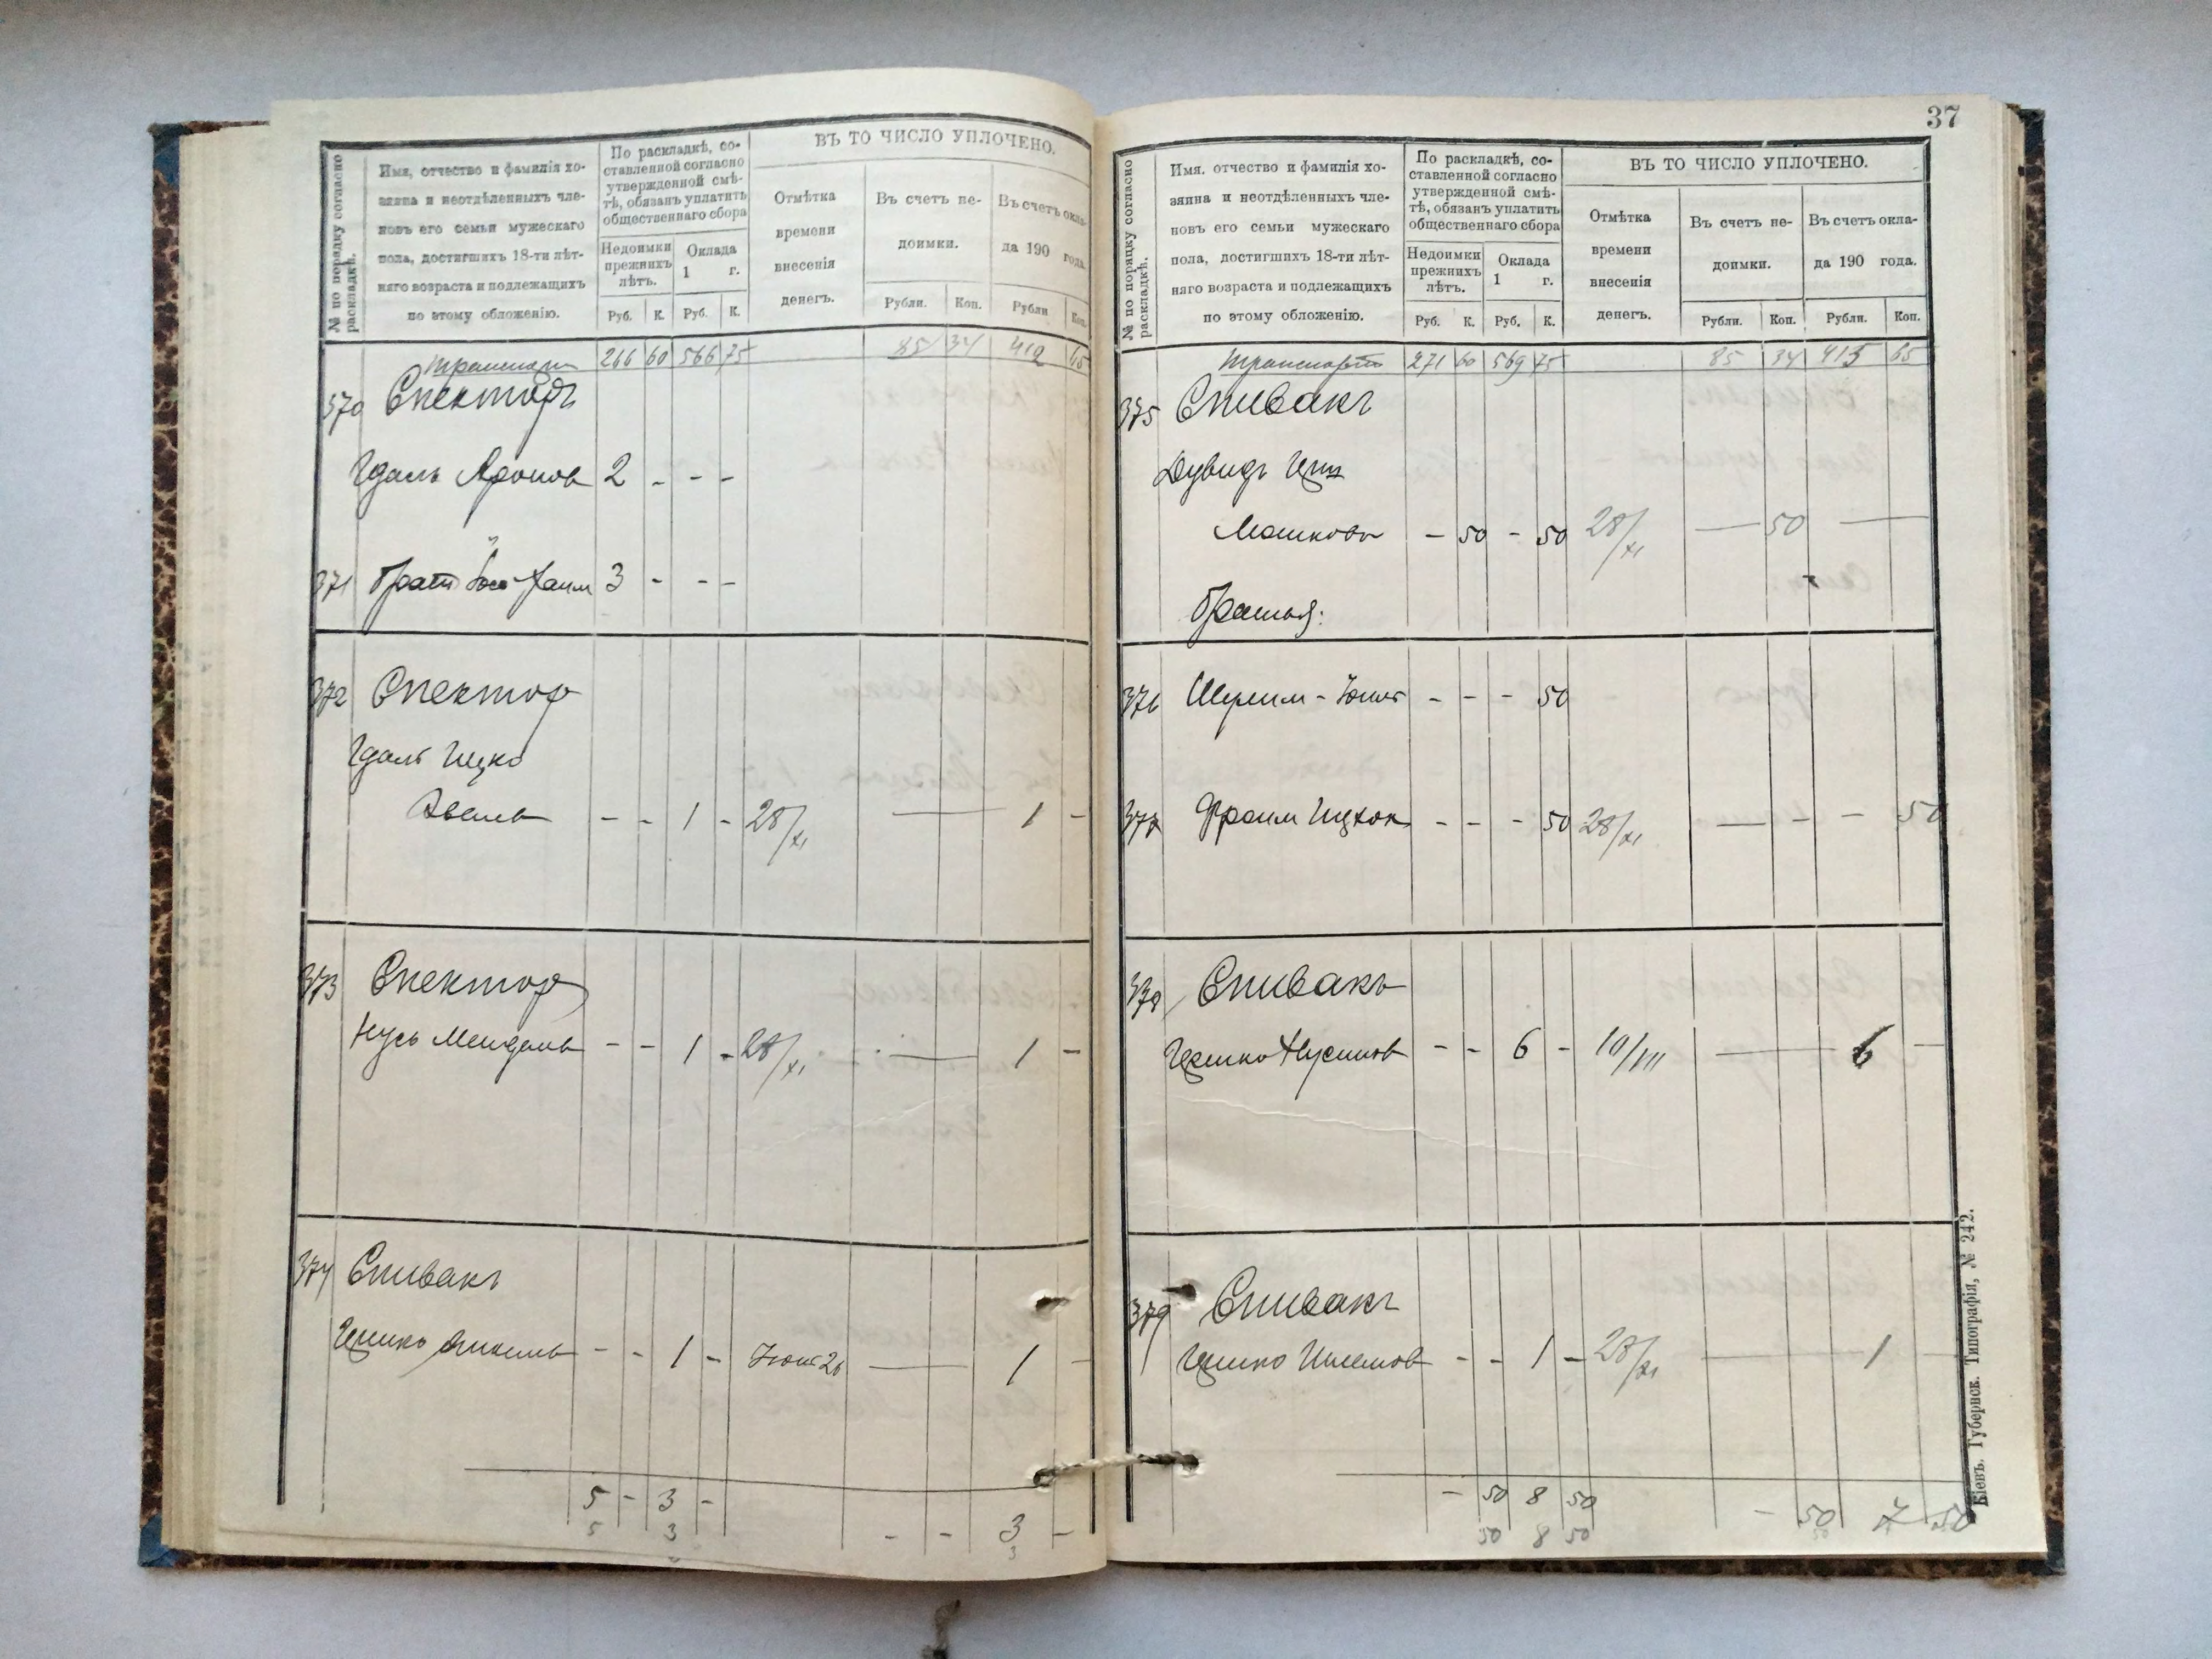 № по порядку согласно раскладкѣ.
Имя, отчество и фамилія хо-
зяина и неотдѣленныхъ чле-
новъ его семьи мужескаго
пола, достигшихъ 18-ти лѣт-
няго возраста и подлежащихъ
по этому обложенію.
По раскладкѣ, со-
ставленной согласно
утвержденной смѣ-
тѣ, обязанъ уплатить
общественнаго сбора
Недоимки
прежнихъ
лѣтъ.
Оклада
1 г.
Руб. К. Руб. К.
ВЪ ТО ЧИСЛО УПЛОЧЕНО.
Отмѣтка
времени
внесенія
денегъ.
Въ счетъ не-
доимки.
Въ счетъ окла-
да 190 года.
Рубли. Коп. Рубли Коп.
Транспорт 266 60 566 75 85 34 412 65
370 Спекторъ
Гдаль Аронов 2 - - -
371 братъ Хаим 3 - - -
372 Спектор
Гдаль Ицко
- - 1 - 28/XI — 1 -
373 Спектор
Нусь Мендель - - 1 - 28/XI — 1 -
374 Спивакъ
Ицко - - 1 - 26 — 1 -
5 - 3 - - - 3 -
5 3 3
37
№ по порядку согласно раскладкѣ.
Имя. отчество и фамилія хо-
зяина и неотдѣленныхъ чле-
новъ его семьи мужескаго
пола, достигшихъ 18-ти лѣт-
няго возраста и подлежащихъ
по этому обложенію.
По раскладкѣ, со-
ставленной согласно
утвержденной смѣ-
тѣ, обязанъ уплатить
общественнаго сбора
Недоимки
прежнихъ
лѣтъ.
Оклада
1 г.
Руб. К. Руб. К.
ВЪ ТО ЧИСЛО УПЛОЧЕНО.
Отмѣтка
времени
внесенія
денегъ.
Въ счетъ не-
доимки.
Въ счетъ окла-
да 190 года.
Рубли. Коп. Рубли. Коп.
Транспортъ 271 60 569 75 85 34 415 65
375 Спивакъ
Дувидъ
Мошковъ - 50 - 50 28/XI — 50 —
братья:
376 - - - 50
377 Фроим Ицхок - - - 50 28/XI — - - 50
378 Спивакъ
Нусинов - - 6 - 10/VII — 6 —
379 Спивакъ
Шлемов - - 1 - 28/XI — 1 -
- 50 8 50 - 50 7 50
50 8 50 50
Кіевъ. Губернск. Типографія, № 242.